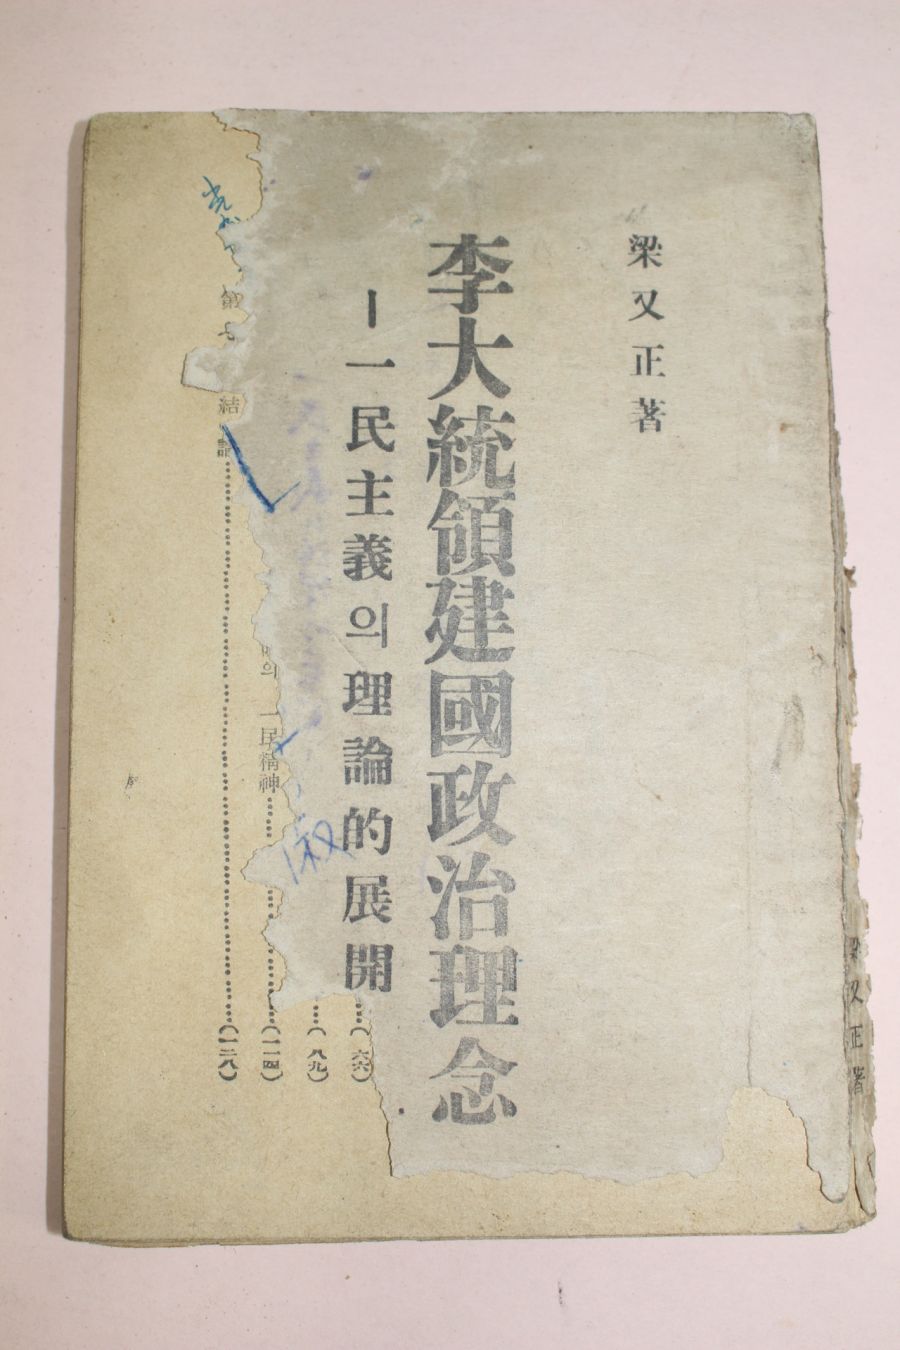 梁又正著
李大統領建國政治理念
ー一民主義의理論的展開
(六六)
(八九)
의 一民精神…(一一四)
第七 結論…(一二八)
梁又正著